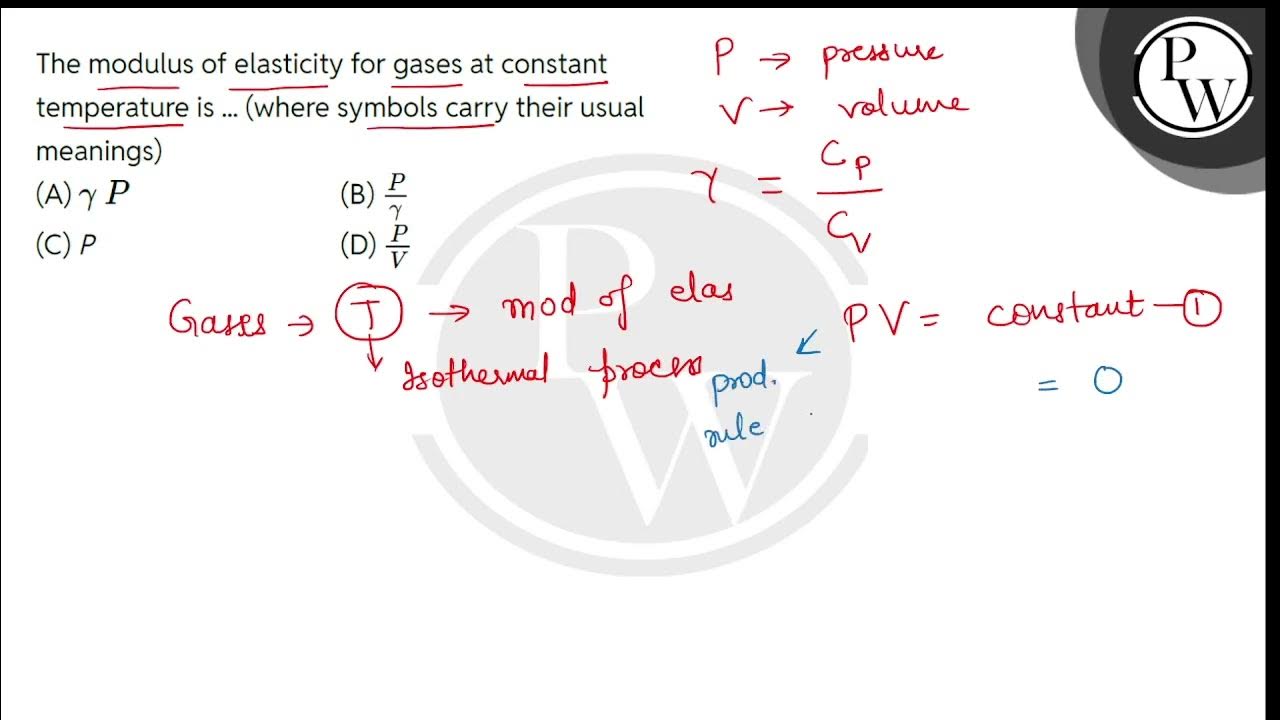 The modulus of elasticity for gases at constant
temperature is ... (where symbols carry their usual
meanings)
(A) γ P
(B) P/γ
(C) P
(D) P/V
P → pressure
V → volume
γ = C_P/C_V
Gases → T → mod of elas
Isothermal process
PV = constant — ①
prod.
rule
= 0
PW
PW